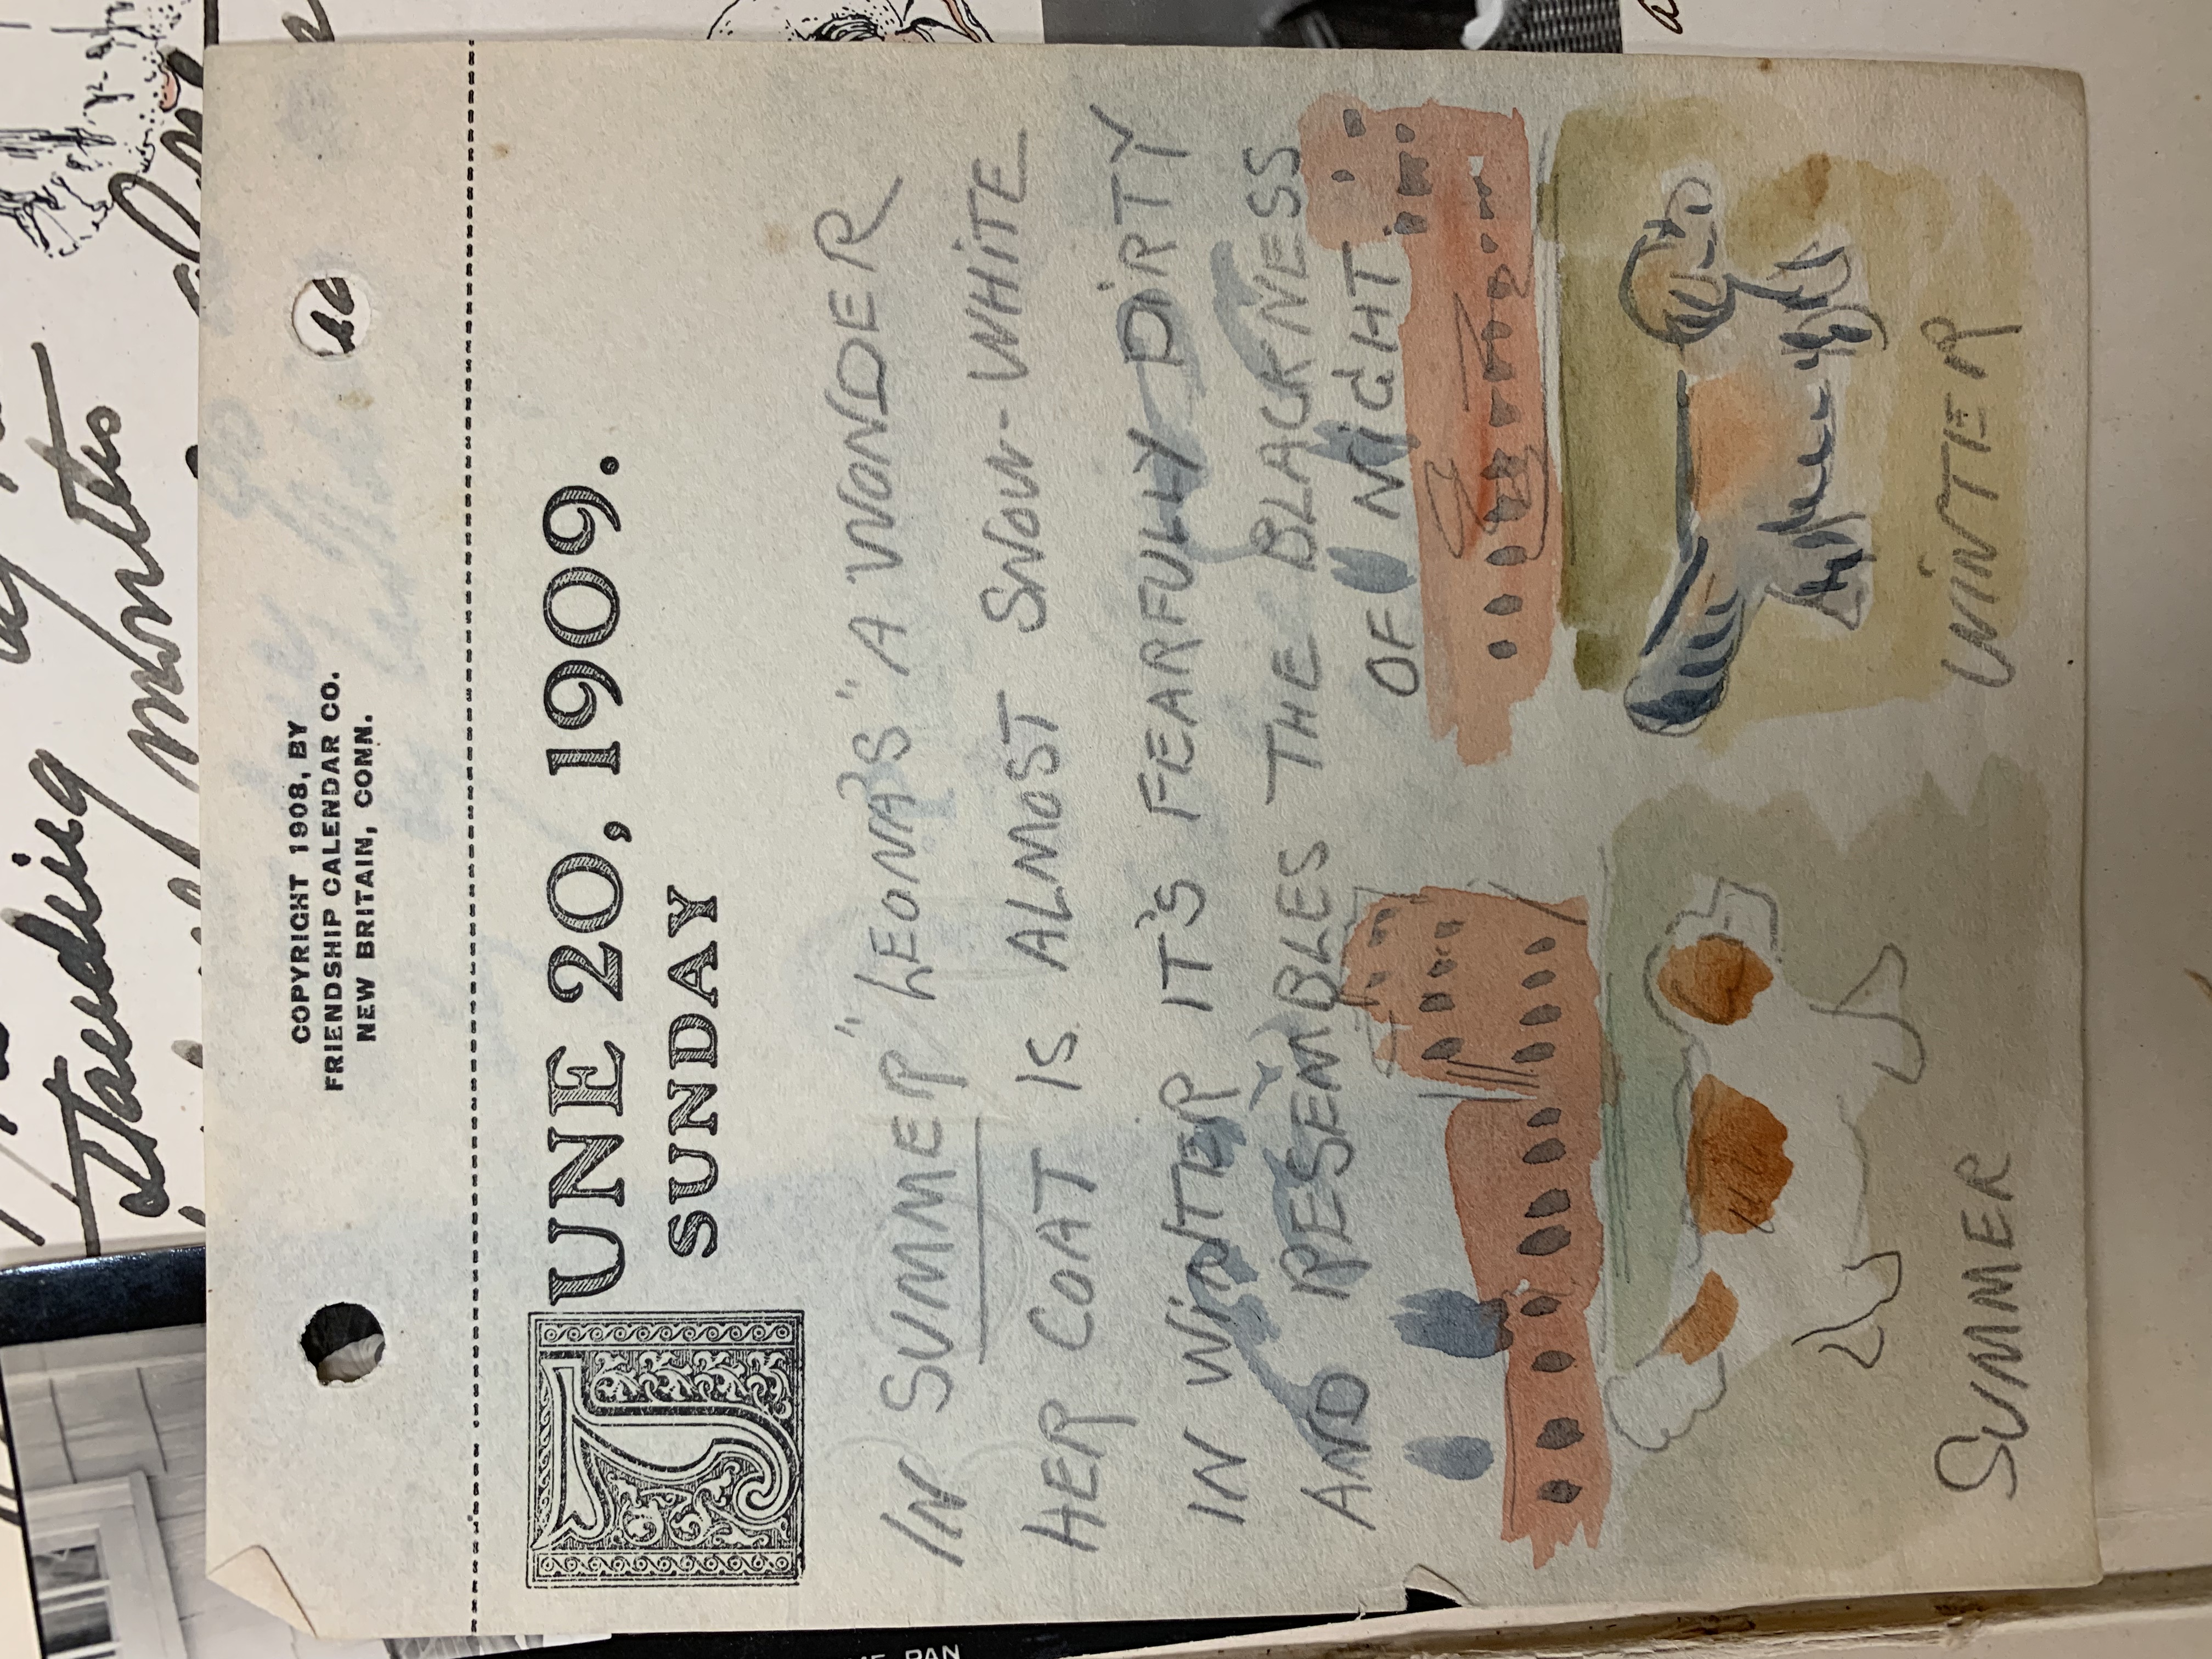 Standing
months
alone
COPYRIGHT 1908, BY
FRIENDSHIP CALENDAR CO.
NEW BRITAIN, CONN.
JUNE 20, 1909.
SUNDAY
IN SUMMER "LEONA'S" A WONDER
HER COAT IS ALMOST SNOW-WHITE
IN WINTER IT'S FEARFULLY DIRTY
AND RESEMBLES THE BLACKNESS
OF NIGHT.
SUMMER
WINTER